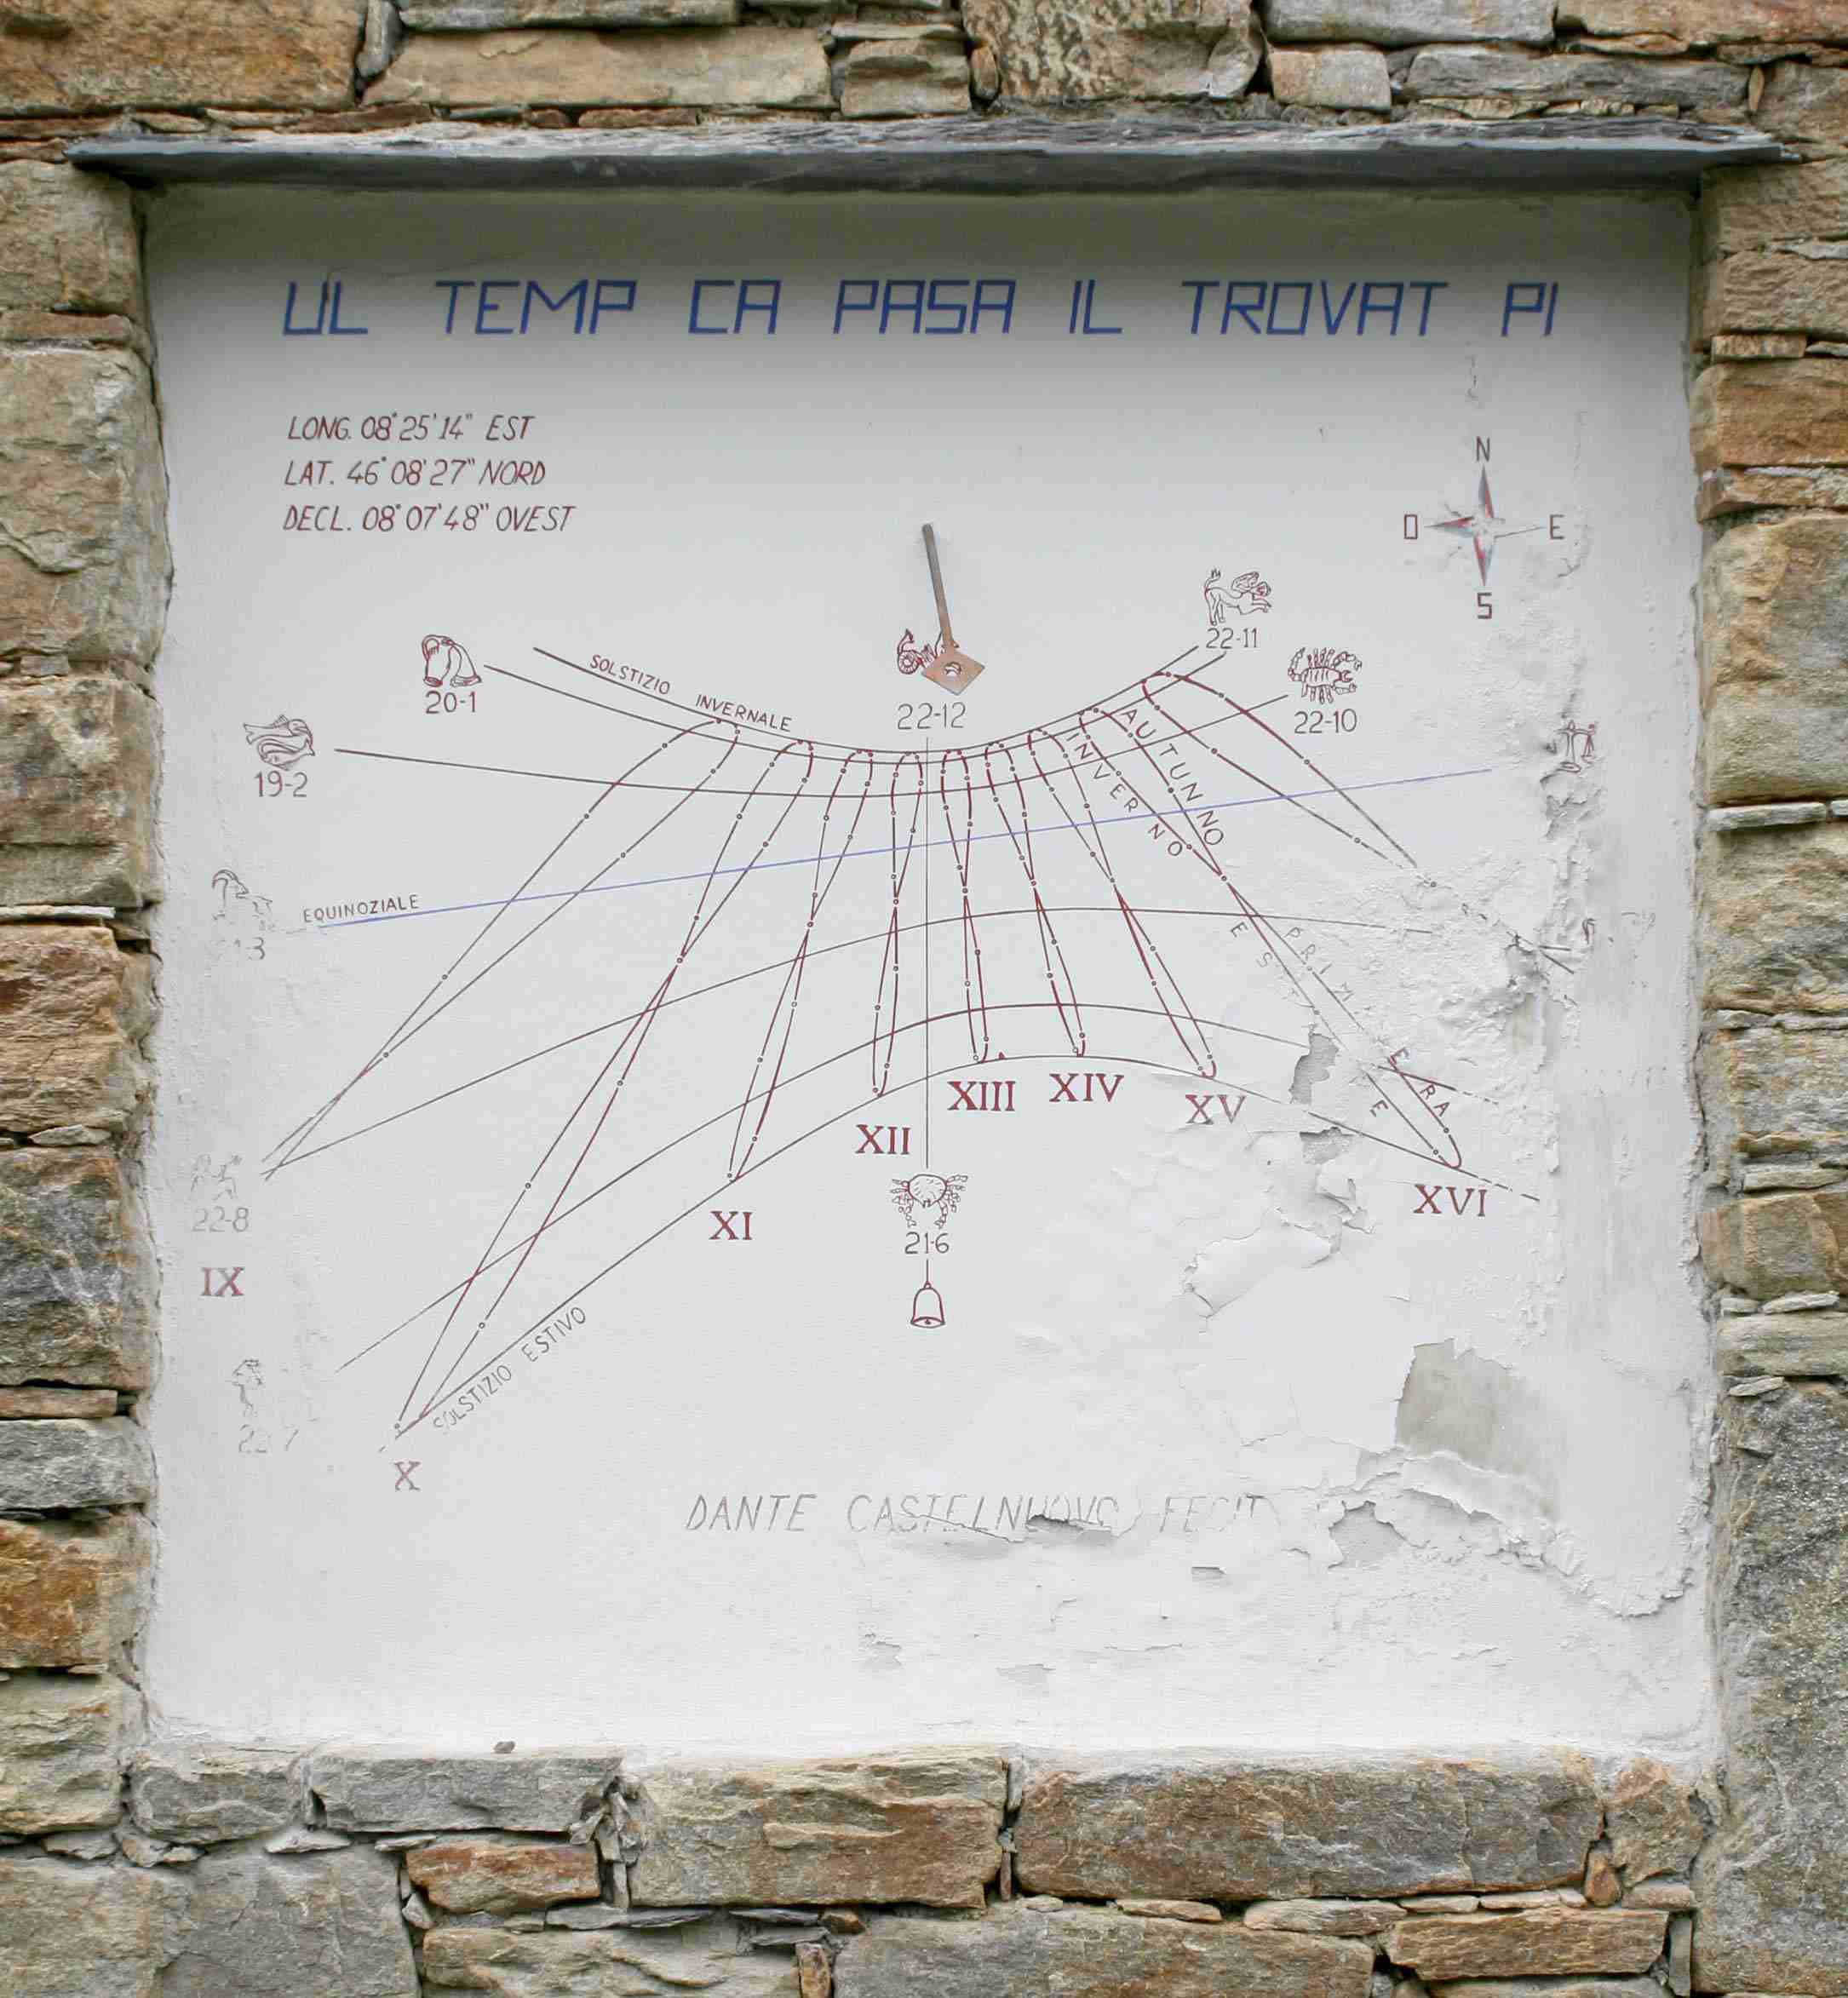 UL TEMP CA PASA IL TROVAT PI
LONG. 08°25'14" EST
LAT. 46°08'27" NORD
DECL. 08°07'48" OVEST
N
O E
S
22-11
20-1
SOLSTIZIO INVERNALE
22-12
22-10
19-2
AUTUNNO
INVERNO
EQUINOZIALE
3
PRIMAVERA
ESTATE
22-8
IX
XII
XIII
XIV
XV
XVI
XI
21-6
SOLSTIZIO ESTIVO
X
DANTE CASTELNUOVO FECIT